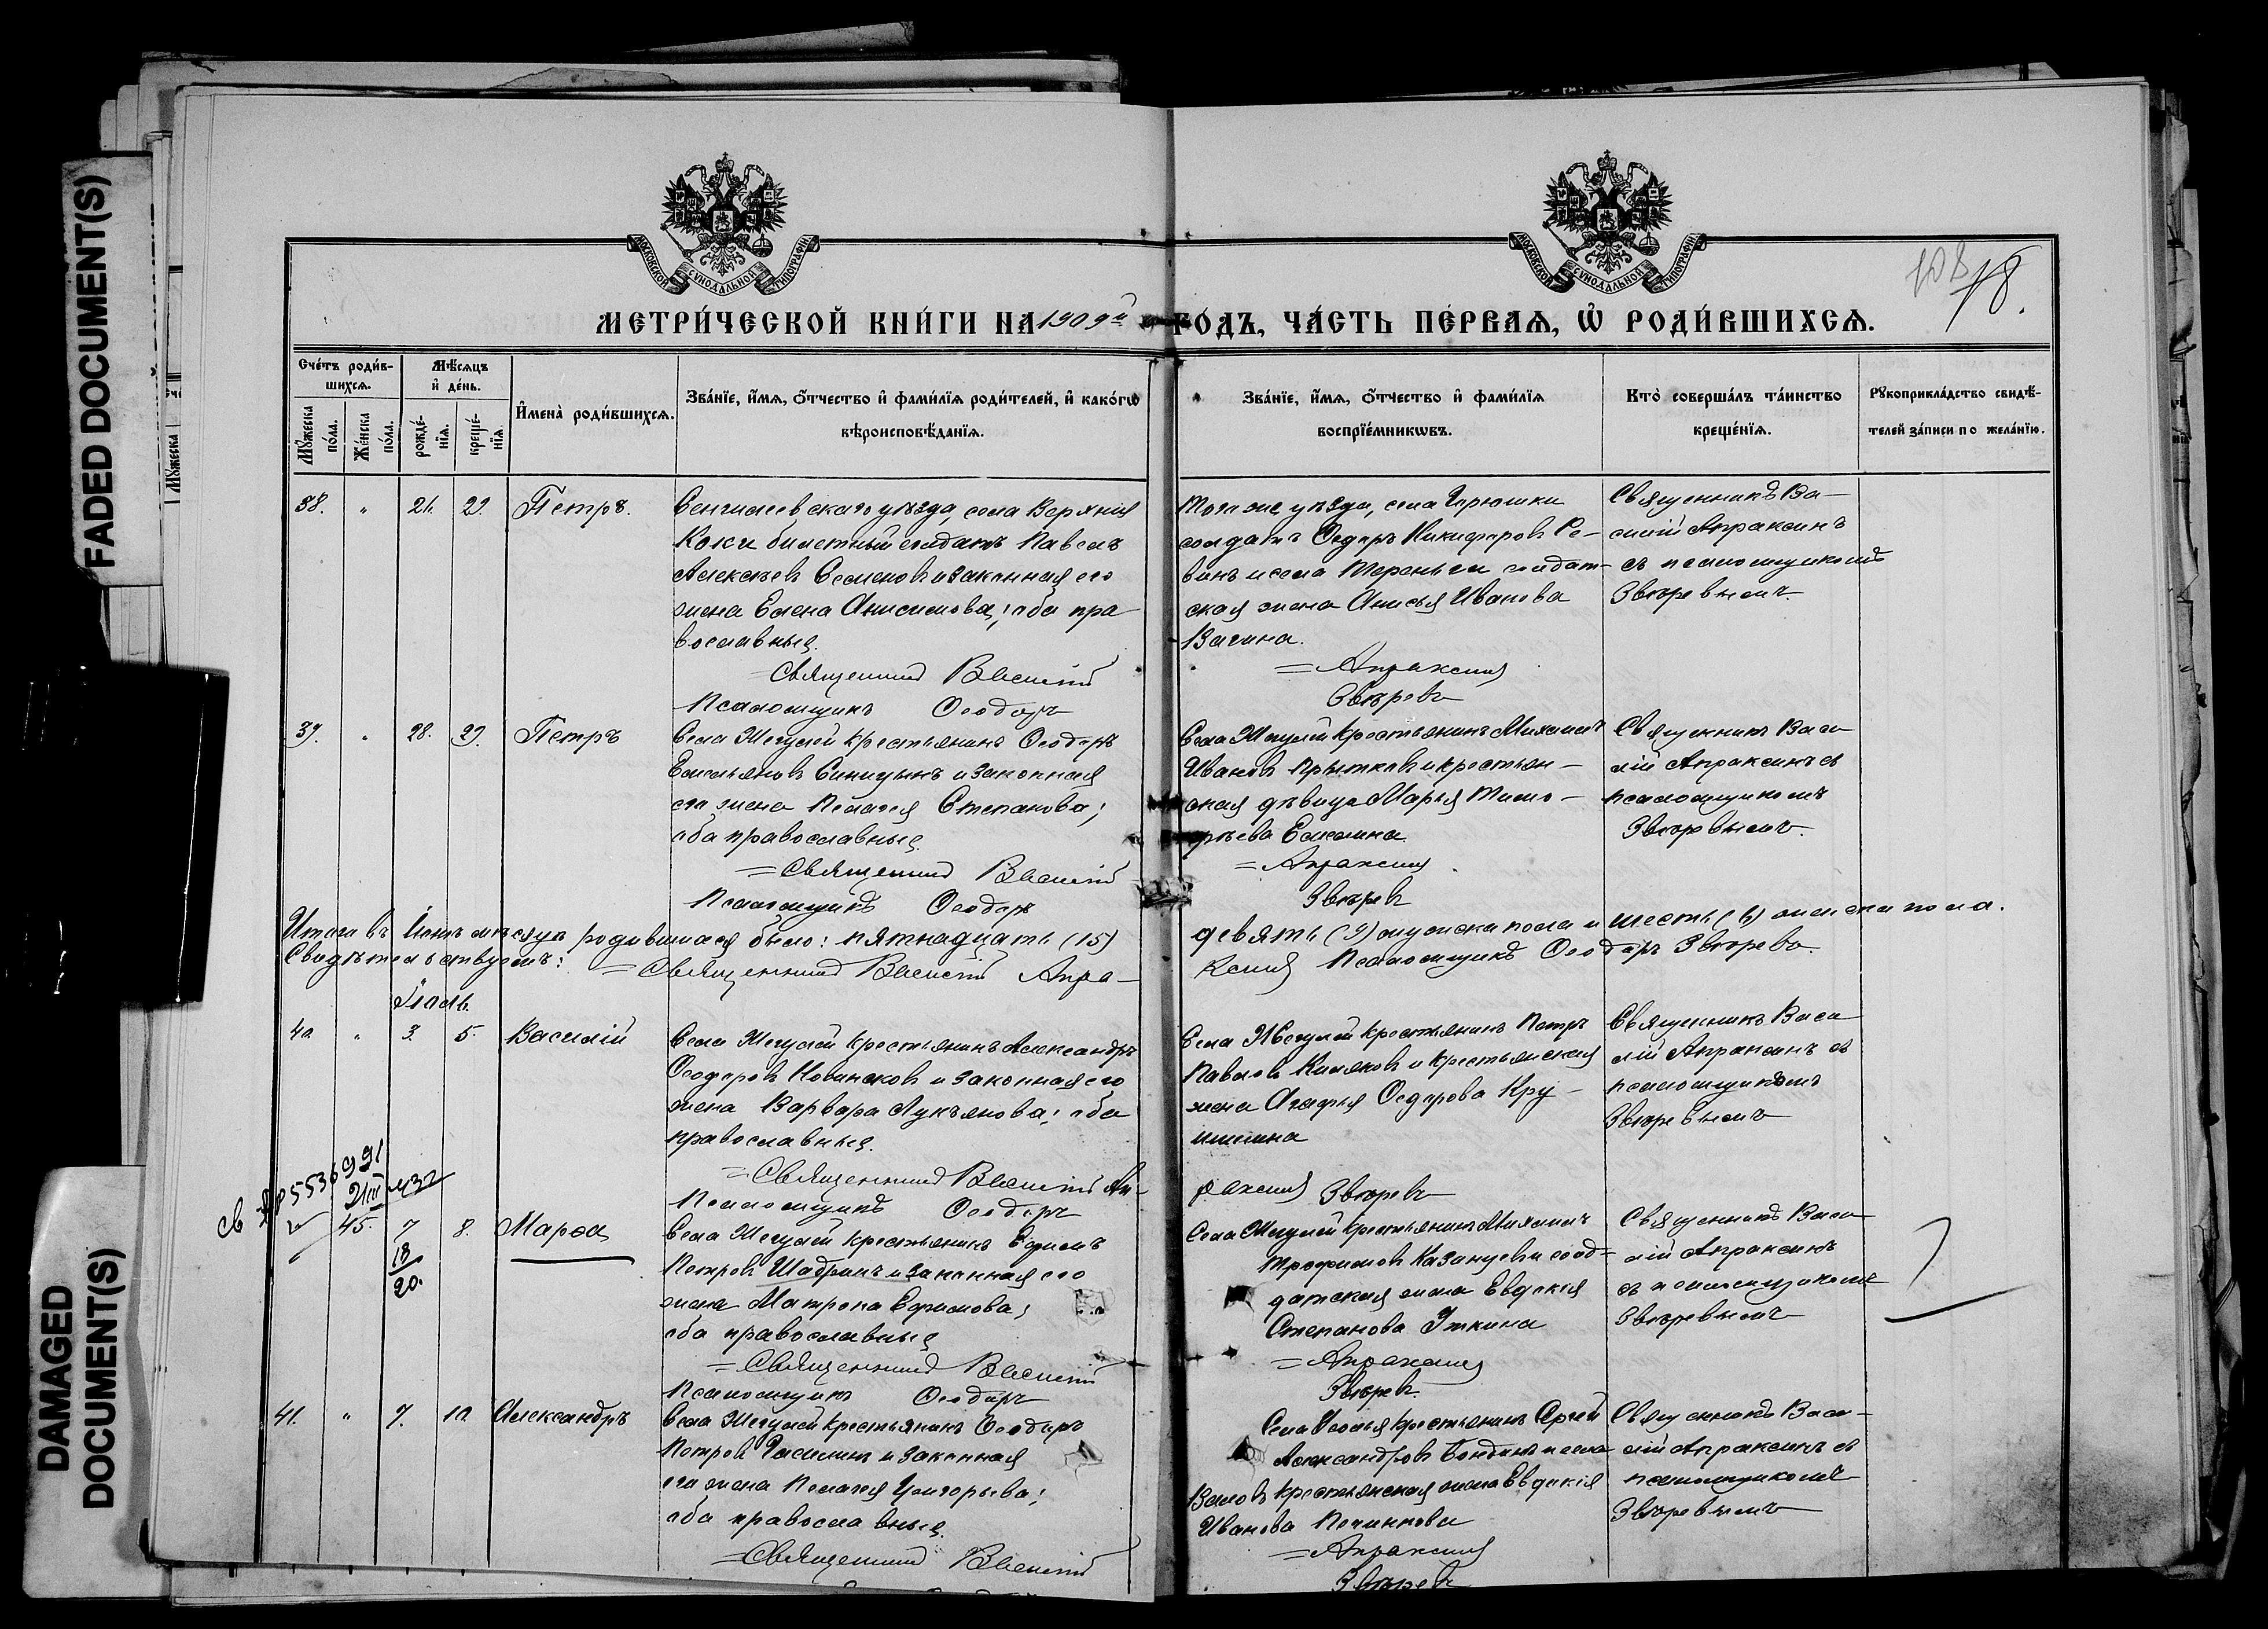 FADED DOCUMENT(S)
DAMAGED
DOCUMENT(S)
МОСКОВСКОЙ СѴНОДАЛЬНОЙ ТИПОГРАФІИ
МОСКОВСКОЙ СѴНОДАЛЬНОЙ ТИПОГРАФІИ
108
78.
МЕТРИ́ЧЕСКОЙ КНИ́ГИ НА 1909й ГО́ДЪ, ЧА́СТЬ ПЕ́РВАѦ, Ѡ҆ РОДИ́ВШИХСѦ.
Сче́тъ роди́в-
шихсѧ.
Мѣ́сѧцъ
и҆ де́нь.
Мꙋ́жеска
по́ла.
Же́нска
по́ла.
рожде́-
нїѧ.
креще́-
нїѧ.
И҆мена̀ роди́вшихсѧ.
Зва́нїе, и҆́мѧ, ѻ҆́тчество и҆ фами́лїѧ роди́телей, и҆ како́гѡ
вѣроисповѣ́данїѧ.
Зва́нїе, и҆́мѧ, ѻ҆́тчество и҆ фами́лїѧ
воспрїе́мникѡвъ.
Кто̀ соверша́лъ та́инство
креще́нїѧ.
Рꙋкоприкла́дство свидѣ́-
телей за́писи по жела́нїю.
38. " 21. 29. Петръ.
Сенгилеевскаго уѣзда, села Верхнія
Коки билетный солдатъ Павелъ
Алексѣевъ Семеновъ и законная его
жена Елена Анисимова; оба пра
вославные.
Священникъ Василій
Псаломщикъ Ѳеодоръ
Того же уѣзда, села
солдатъ Ѳедоръ Никифоровъ Ре-
винъ и села Тереньги солдат-
ская жена Анисья Иванова
Вагина.
Апраксинъ
Звѣревъ
Священникъ Ва-
силій Апраксинъ
съ псаломщикомъ
Звѣревымъ.
39. " 28. 29. Петръ
Села Жегулей крестьянинъ Ѳеодоръ
Емельяновъ Синицынъ и законная
его жена Пелагея Степанова;
оба православные.
Священникъ Василій
Псаломщикъ Ѳеодоръ
Села Жегулей крестьянинъ Михаилъ
Ивановъ Прытковъ и крестьян-
ская дѣвица Марья Тимо-
фѣева Емелина.
Апраксинъ
Звѣревъ
Священникъ Васи
лій Апраксинъ съ
псаломщикомъ
Звѣревымъ.
Итого въ Іюнѣ мѣсяцѣ родившихся было: пятнадцать (15) девять (9) мужска пола и шесть (6) женска пола.
Свидѣтельствуемъ: Священникъ Василій Апра-ксинъ Псаломщикъ Ѳеодоръ Звѣревъ.
Іюль.
40 " 3. 5. Василій
Села Жегулей крестьянинъ Александръ
Ѳеодоровъ Новинсковъ и законная его
жена Варвара Лукьянова; оба
православные.
Священникъ Василій Ап-
Псаломщикъ Ѳеодоръ
Села Жегулей крестьянинъ Петръ
Павловъ и крестьянская
жена Агафья Ѳедорова Кру-
шинина
раксинъ Звѣревъ
Священникъ Васи
лій Апраксинъ съ
псаломщикомъ
Звѣревымъ
45. 7 8. Марѳа
18
20.
Села Жегулей крестьянинъ Ефимъ
Петровъ Шадринъ и законная его
жена Матрона Ефимова;
оба православные
Священникъ Василій
Псаломщикъ Ѳеодоръ
Села Жегулей крестьянинъ Михаилъ
Трофимовъ Казанцевъ и солд-
датская жена Евдокія
Степанова Уткина
Апраксинъ
Звѣревъ.
Священникъ Васи
лій Апраксинъ
съ псаломщикомъ
Звѣревымъ
41. " 7. 10. Александръ
Села Жегулей крестьянинъ Ѳеодоръ
Петровъ и законная
его жена Пелагея Григорьева;
оба православные.
Священникъ Василій
Села Усолья крестьянинъ Сергей
Александровъ и села
Валовъ крестьянская жена Евдокія
Иванова Починнова
Апраксинъ
Звѣревъ
Священникъ Васи-
лій Апраксинъ съ
псаломщикомъ
Звѣревымъ